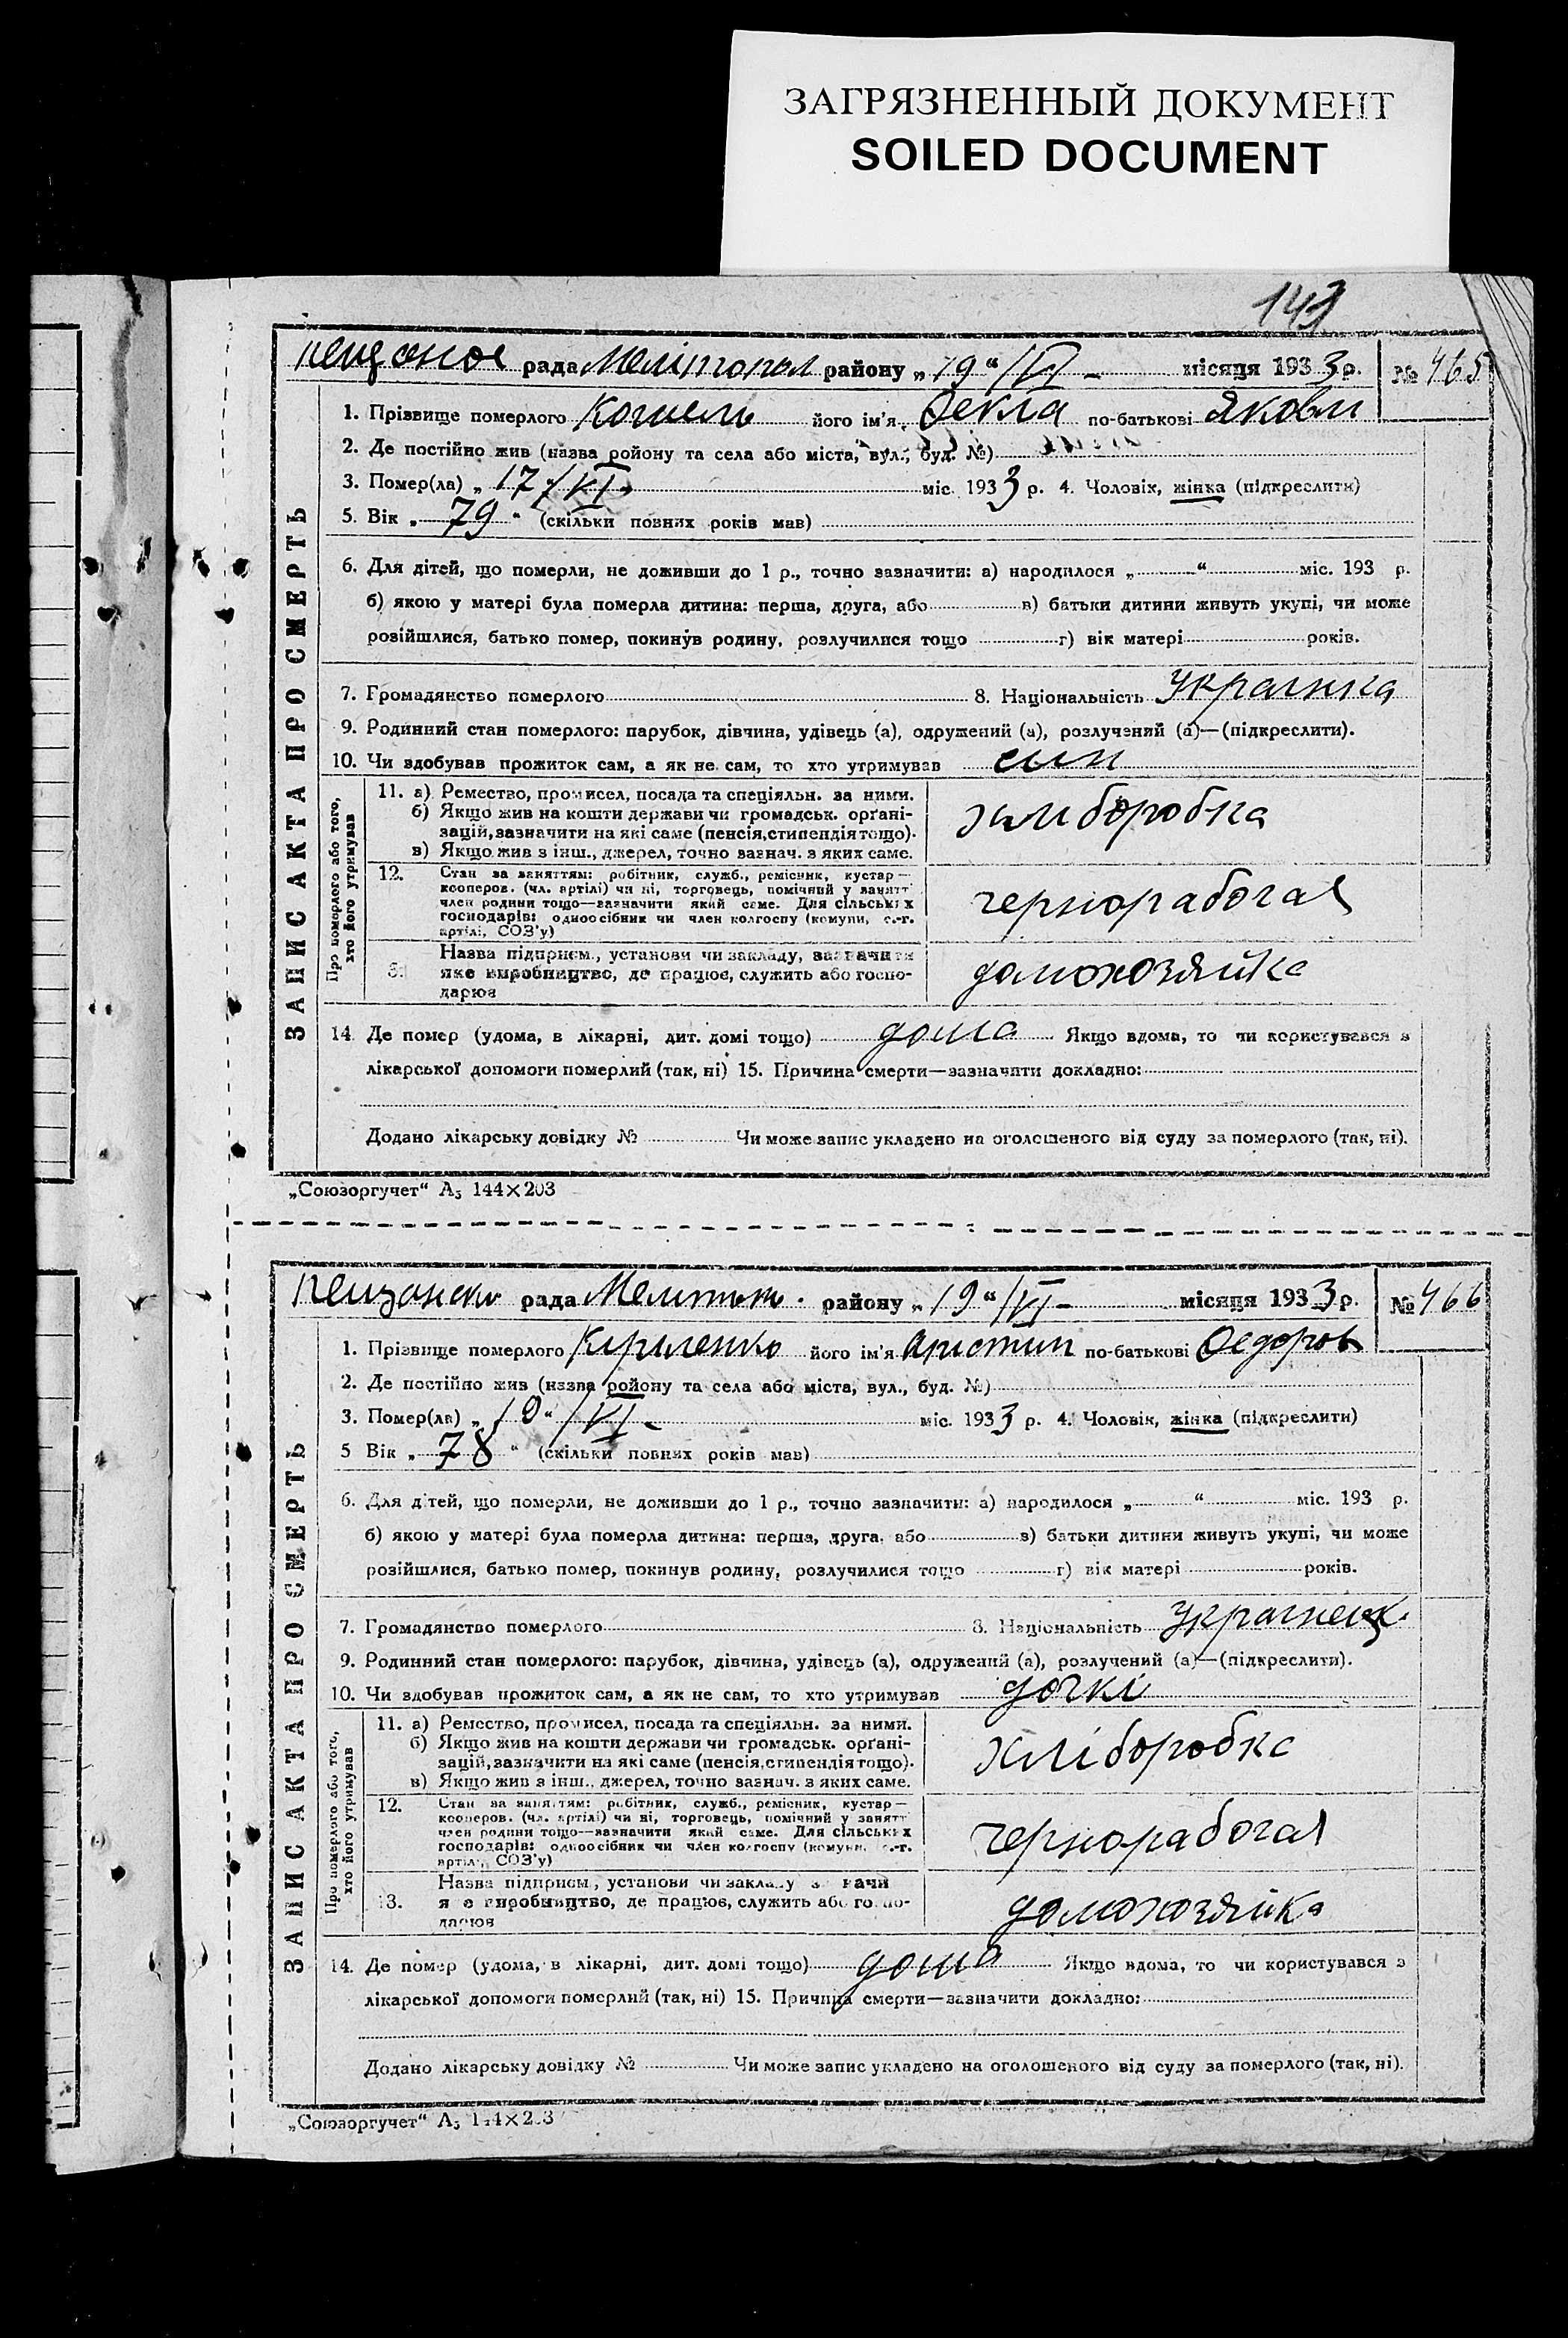 ЗАГРЯЗНЕННЫЙ ДОКУМЕНТ
SOILED DOCUMENT
143
ЗАПИС АКТА ПРО СМЕРТЬ
рада Меліtопол району „19“ /VI - місяця 1933 р. № 465
1. Прізвище померлого Кошель його ім'я Фекла по-батькові Яковл
2. Де постійно жив (назва району та села або міста, вул., буд. №)
3. Помер(ла) „17“ /VI- міс. 1933 р. 4. Чоловік, жінка (підкреслити)
5. Вік „79“ (скільки повних років мав)
6. Для дітей, що померли, не доживши до 1 р., точно зазначити: а) народилося „ “ міс. 193 р.
б) якою у матері була померла дитина: перша, друга, або в) батьки дитини живуть укупі, чи може
розійшлися, батько помер, покинув родину, розлучилися тощо г) вік матері років.
7. Громадянство померлого 8. Національність Украинка
9. Родинний стан померлого: парубок, дівчина, удівець (а), одружений (а), розлучений (а)—(підкреслити).
10. Чи здобував прожиток сам, а як не сам, то хто утримував сын
Про померлого або того, хто його утримував
11. а) Ремество, промисел, посада та спеціяльн. за ними.
б) Якщо жив на кошти держави чи громадськ. орґані-
зацій, зазначити на які саме (пенсія, стипендія тощо).
в) Якщо жив з інш., джерел, точно зазнач. з яких саме.
хліборобка
12. Стан за заняттям: робітник, служб., ремісник, кустар—
кооперов. (чл. артілі) чи ні, торговець, помічний у занятт
член родини тощо—зазначити який саме. Для сільських
господарів: одноосібник чи член колгоспу (комуни, с.-г.
артілі, СОЗ'у)
чернорабочая
Назва підприєм., установи чи закладу, зазначити
яке виробництво, де працює, служить або госпо-
дарює
домохозяйка
14 Де помер (удома, в лікарні, дит. домі тощо) дома Якщо вдома, то чи користувався з
лікарської допомоги померлий (так, ні) 15. Причина смерти—зазначити докладно:
Додано лікарську довідку № Чи може запис укладено на оголошеного від суду за померлого (так, ні).
„Союзоргучет“ А₅ 144×203
ЗАПИС АКТА ПРО СМЕРТЬ
рада району „19“ /VI- місяця 1933 р. № 466
1. Прізвище померлого Кириленко його ім'я Христин по-батькові Федоров
2. Де постійно жив (назва району та села або міста, вул., буд. №)
3. Помер(ла) „ “ /VI- міс. 1933 р. 4. Чоловік, жінка (підкреслити)
5 Вік „78“ (скільки повних років мав)
6. Для дітей, що померли, не доживши до 1 р., точно зазначити: а) народилося „ “ міс. 193 р.
б) якою у матері була померла дитина: перша, друга, або в) батьки дитини живуть укупі, чи може
розійшлися, батько помер, покинув родину, розлучилися тощо г) вік матері років.
7. Громадянство померлого 8. Національність
9. Родинний стан померлого: парубок, дівчина, удівець (а), одружений (а), розлучений (а)—(підкреслити).
10. Чи здобував прожиток сам, а як не сам, то хто утримував дочкі
Про померлого або того, хто його утримував
11. а) Ремество, промисел, посада та спеціяльн. за ними.
б) Якщо жив на кошти держави чи громадськ. орґані-
зацій, зазначити на які саме (пенсія, стипендія тощо).
в) Якщо жив з інш., джерел, точно зазнач. з яких саме.
хліборобка
12. Стан за заняттям: робітник, служб., ремісник, кустар—
кооперов. (чл. артілі) чи ні, торговець, помічний у занятт
член родини тощо—зазначити який саме. Для сільських
господарів: одноосібник чи член колгоспу (комуни, с.-г.
артілі, СОЗ'у)
чернорабочая
13. Назва підприєм., установи чи закладу
виробництво, де працює, служить або госпо-
дарює
домохозяйка
14. Де помер (удома, в лікарні, дит. домі тощо) дома Якщо вдома, то чи користувався з
лікарської допомоги померлий (так, ні) 15. Причина смерти—зазначити докладно:
Додано лікарську довідку № Чи може запис укладено на оголошеного від суду за померлого (так, ні).
„Союзоргучет“ А₅